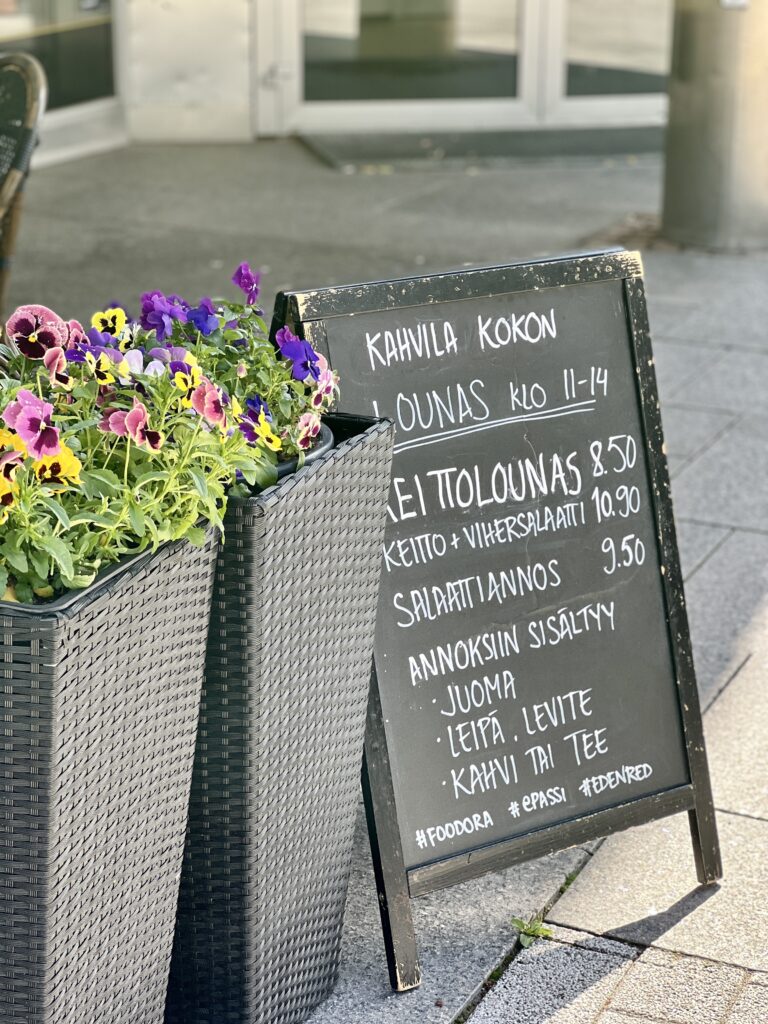 KAHVILA KOKON
LOUNAS KLO 11-14
KEITTOLOUNAS 8.50
KEITTO + VIHERSALAATTI 10.90
SALAATTIANNOS 9.50
ANNOKSIIN SISÄLTYY
· JUOMA
· LEIPÄ, LEVITE
· KAHVI TAI TEE
#FOODORA #ePASSI #EDENRED